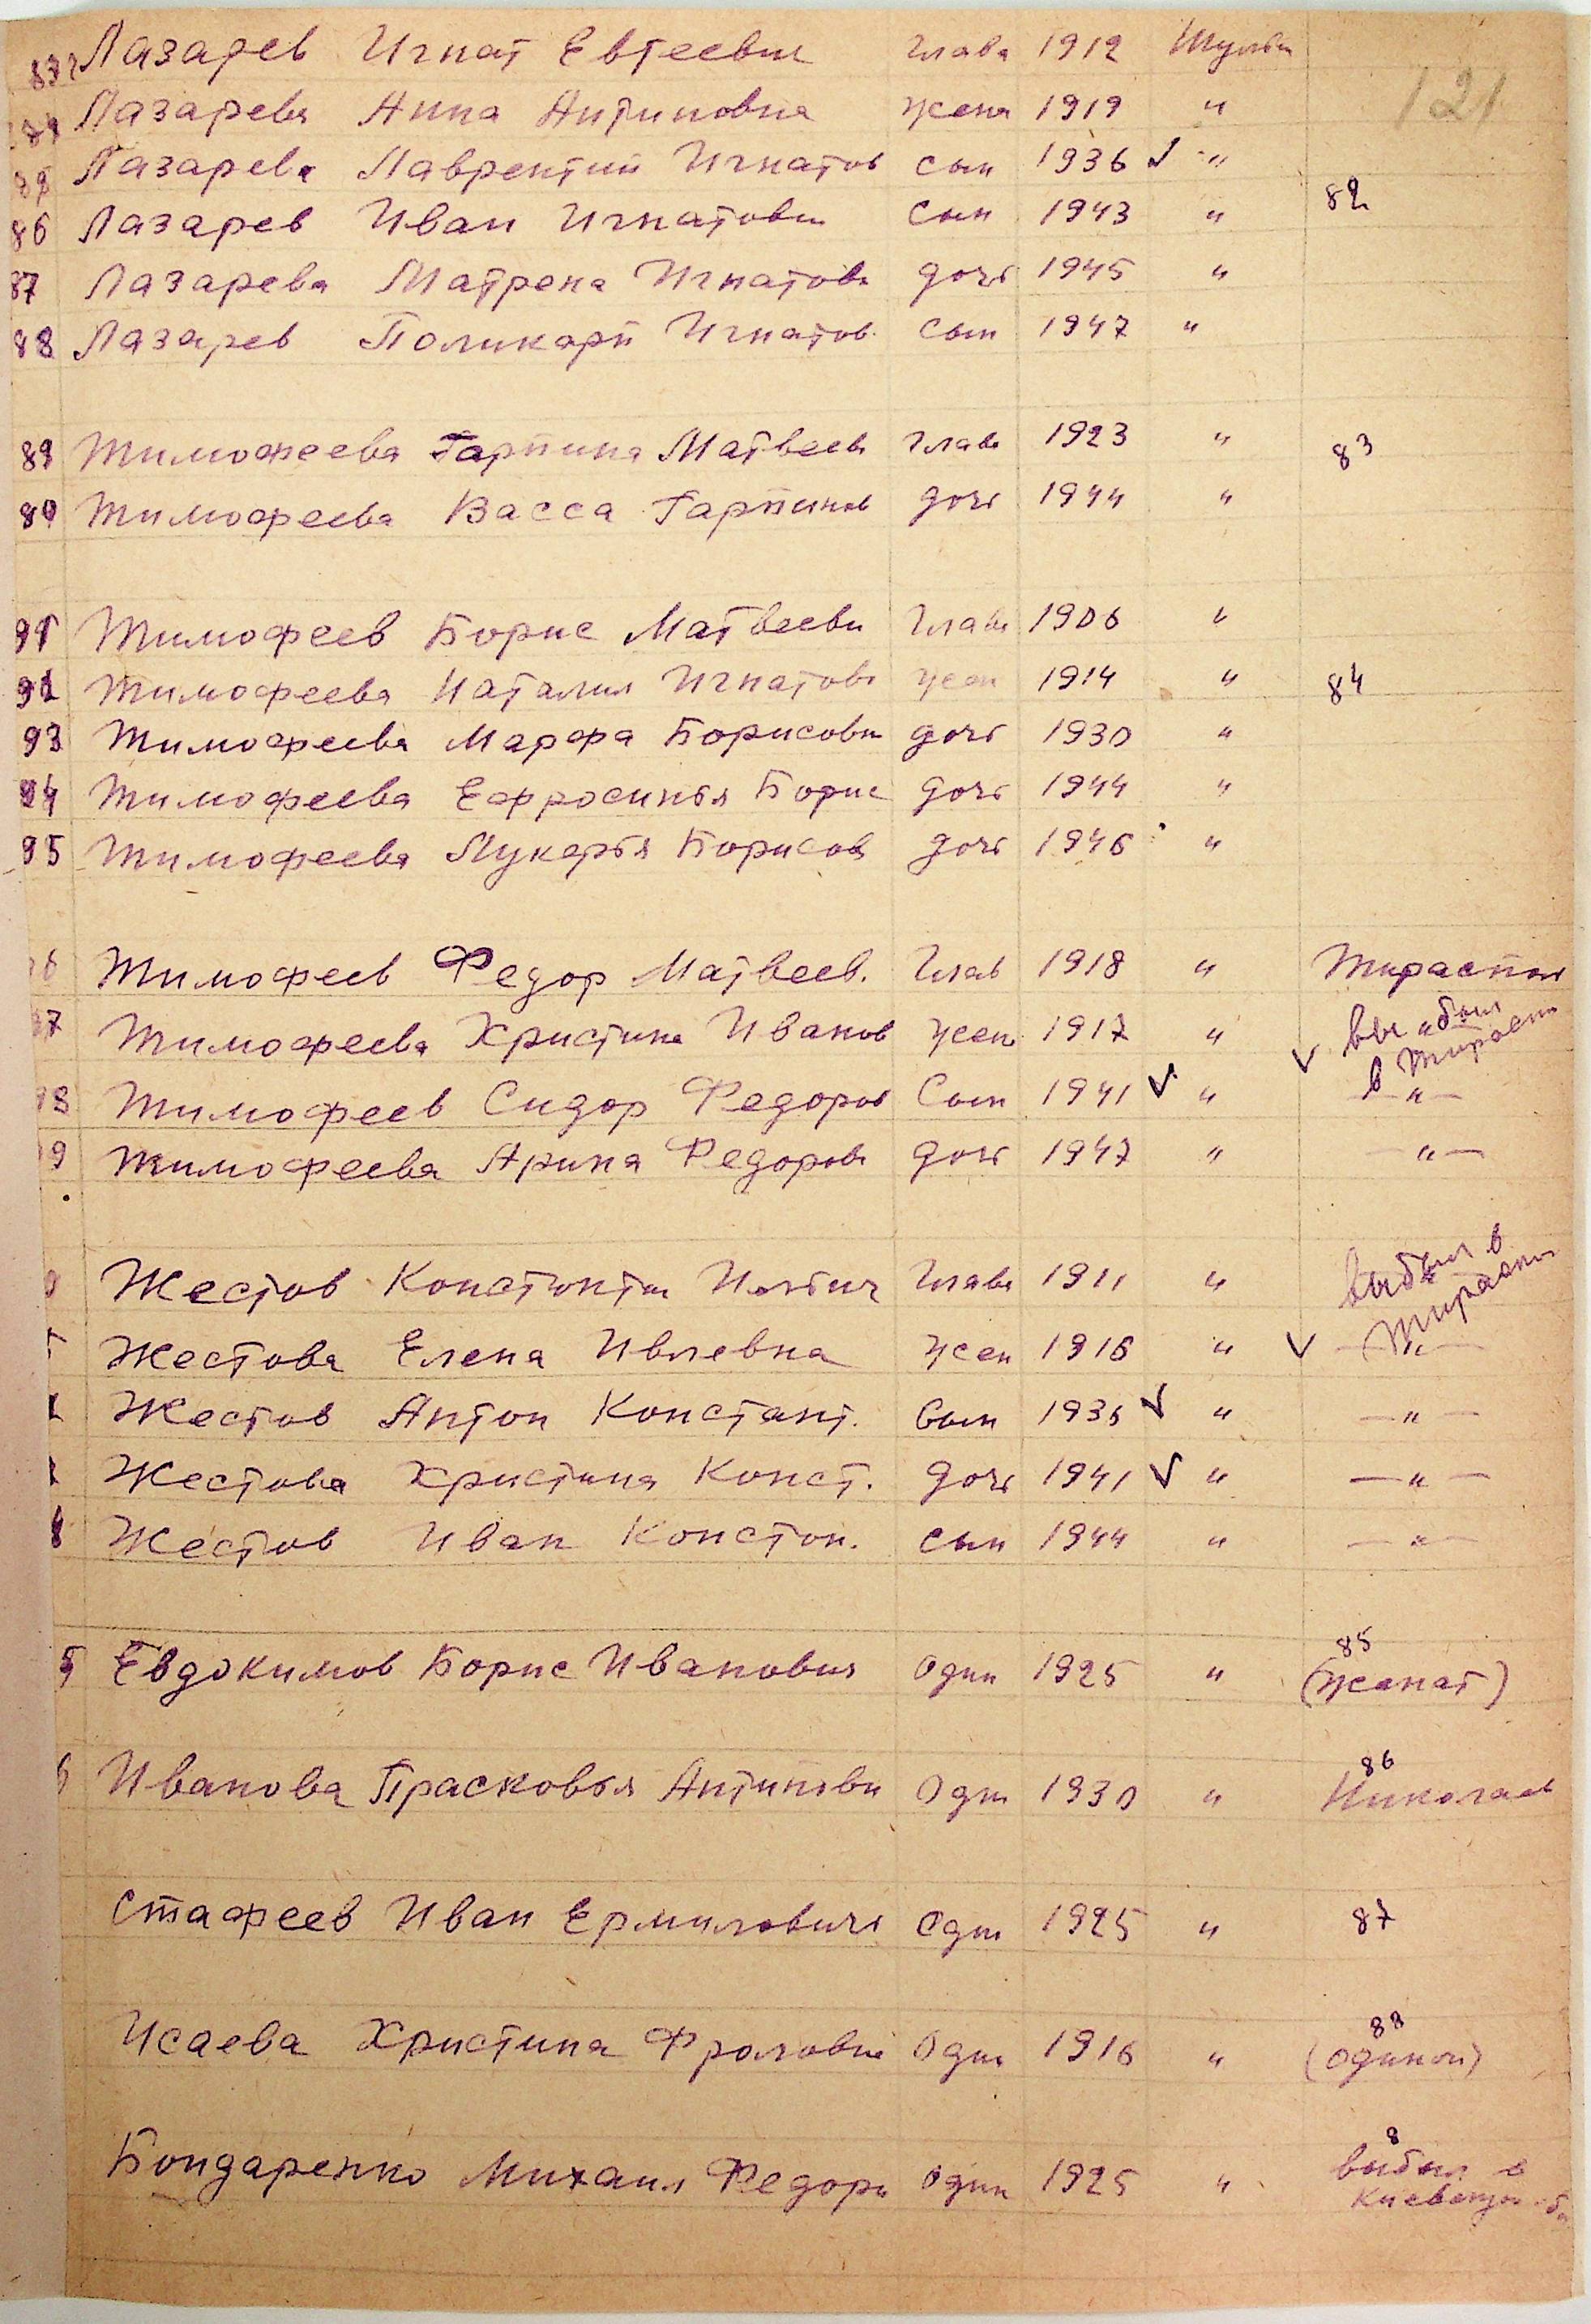 Лазарев Игнат Евтеевич глава 1912
121
Лазарева Анна Антиповна жена 1919 "
Лазарева Лаврентий Игнатов сын 1936 ✓ "
86 Лазарев Иван Игнатович сын 1943 " 82
87 Лазарева Матрена Игнатова дочь 1945 "
88 Лазарев Поликарп Игнатов. сын 1947 "
89 Тимофеева Гарпина Матвеев глава 1923 " 83
Тимофеева Васса Гарпинов дочь 1944 "
91 Тимофеев Борис Матвееви глава 1906 "
92 Тимофеева Наталия Игнатов жен 1914 " 84
93 Тимофеева Марфа Борисовн дочь 1930 "
94 Тимофеева Ефросинья Борис дочь 1944 "
95 Тимофеева Лукерья Борисов дочь 1946 "
6 Тимофеев Федор Матвеев. Глав 1918 " Тирасполь
7 Тимофеева Христина Иванов жен 1917 " ✓ выбыл в Тирасп
8 Тимофеев Сидор Федоров Сын 1941 ✓ " — " —
9 Тимофеева Арина Федоров дочь 1947 " — " —
Жестов Глава 1911 " выбыл в Тираспол
Жестова Елена Ивлевна жен 1916 " ✓ — " —
Жестов Антон Констант. Сын 1936 ✓ " — " —
Жестова Христина Конст. дочь 1941 ✓ " — " —
Жестов Иван Констон. сын 1944 " — " —
85
5 Евдокимов Борис Иванович один 1925 " (женат)
86
6 Иванова Прасковья Антиповн Один 1930 " Николаев
Стафеев Иван Ермилович Один 1925 " 87
88
Исаева Христина Фроловн Один 1916 " (одинок)
8
Бондаренко Михаил Федори один 1925 " выбыл в